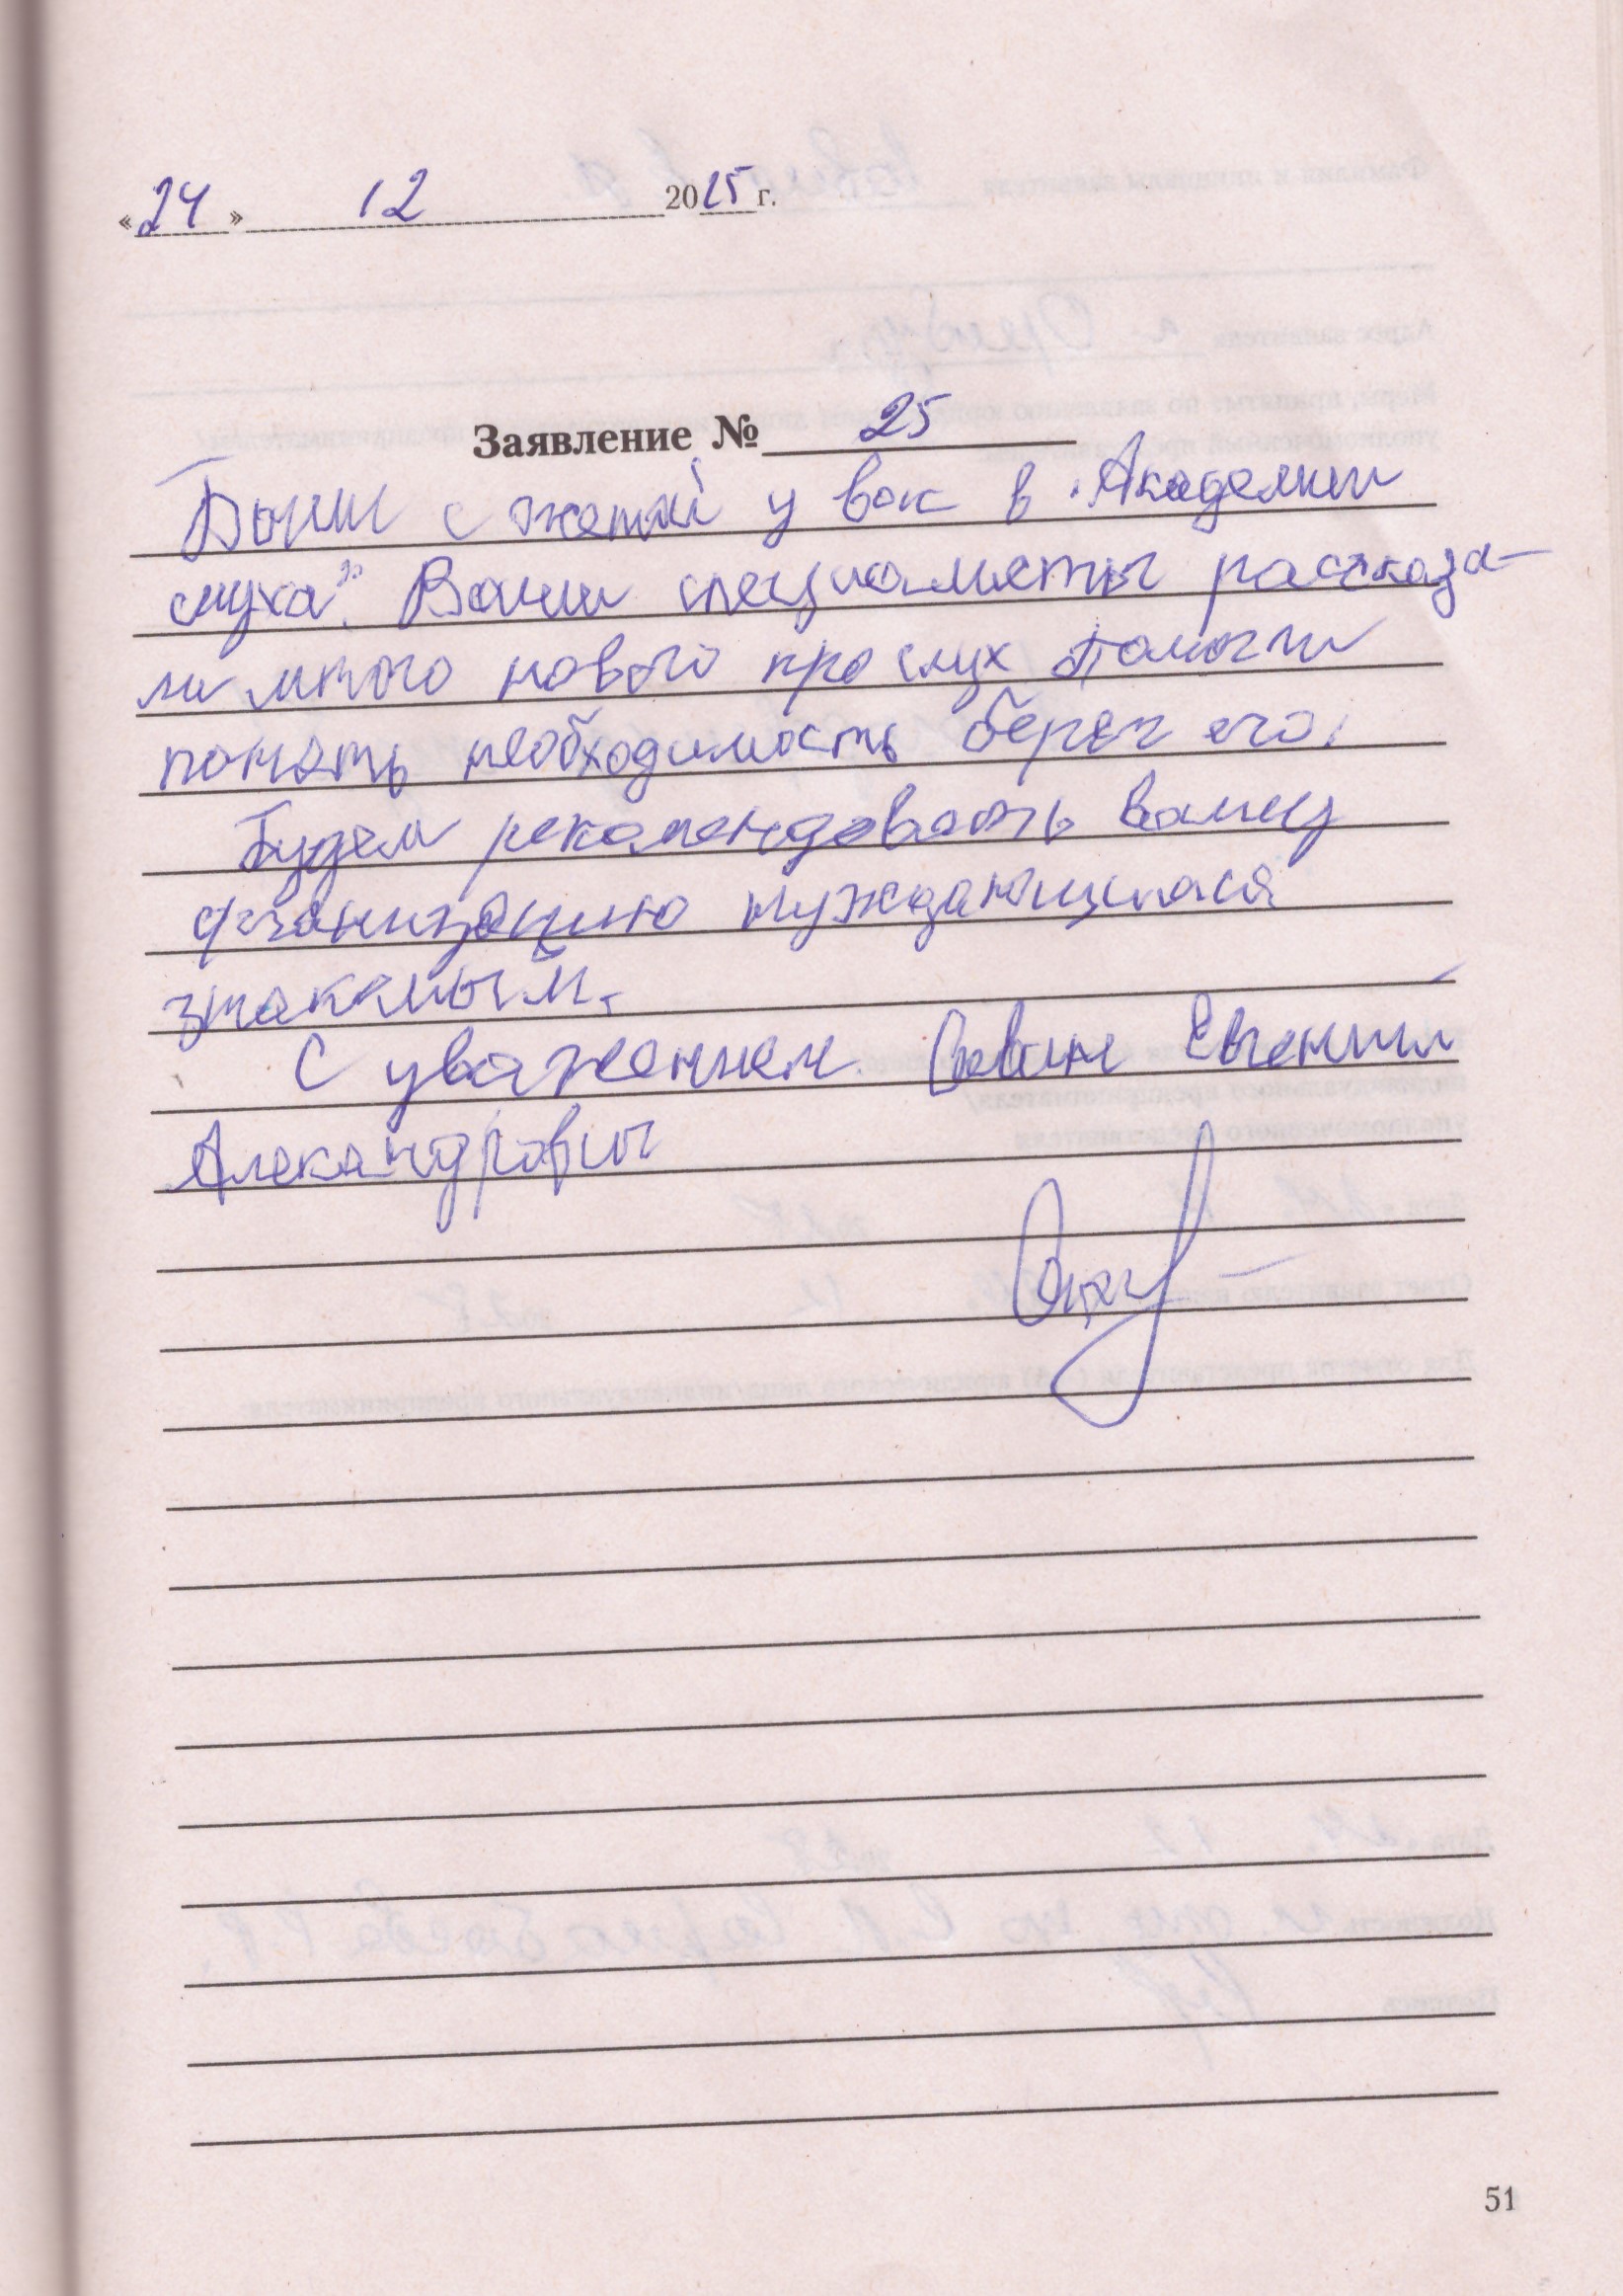 «24» 12 2025 г.
Заявление № 25
Были с женой у вас в "Академии
слуха". Ваши специалисты рассказа-
ли много нового про слух Помогли
понять необходимость беречь его.
Будем рекомендовать вашу
организацию нуждающимся
знакомым.
С уважением Савин Евгений
Александрович
51